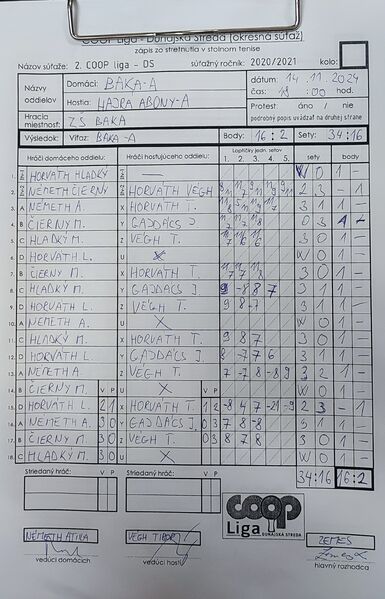 COOP Liga - Dunajská Streda (okresná súťaž)
zápis zo stretnutia v stolnom tenise
Názov súťaže: 2. COOP liga - DS súťažný ročník: 2020/2021 kolo:
Názvy oddielov Domáci: BAKA-A dátum: 14.11.2024
Hostia: HAJRA ABONY-A čas: 18:00 hod.
Hracia miestnosť: ZŠ BAKA Protest: áno / nie
podrobný popis uvádzať na druhej strane
Výsledok Víťaz: BAKA-A Body: 16:2 Sety: 34:16
Hráči domáceho oddielu: Hráči hosťujúceho oddielu: Loptičky jedn. setov sety body
1. 2. 3. 4. 5.
1. HORVÁTH HLADKÝ — W 0 1 -
2. NÉMETH ČIERNY HORVÁTH VEGH 2 3 - 1
3. A NÉMETH A. X HORVÁTH T. 3 1 1 -
4. B ČIERNY M. Y GAJDÁCS J.
5. C HLADKÝ M. Z VEGH T. 3 0 1 -
6. D HORVÁTH L. U X W 0 1 -
7. B ČIERNY M. X HORVÁTH T. 3 0 1 -
8. C HLADKÝ M. Y GAJDÁCS J. 9 -8 8 7 3 1 1 -
9. D HORVÁTH L. Z VEGH T.
10. A NÉMETH A. U X W 0 1 -
11. C HLADKÝ M. X HORVÁTH T. 9 8 7 3 0 1 -
12. D HORVÁTH L. Y GAJDÁCS J. 8 -7 7 6 3 1 1 -
13. A NÉMETH A. Z VEGH T. 7 -7 8 -8 9 3 2 1 -
14. B ČIERNY M. V P U X V P W 0 1 -
15. D HORVÁTH L. 2 1 X HORVÁTH T. 1 2 -8 4 7 -9 2 3 - 1
16. A NÉMETH A. 3 0 Y GAJDÁCS J. 0 3
17. B ČIERNY M. 3 0 Z VEGH T. 0 3 8 7 8 3 0 1 -
18. C HLADKÝ M. 3 0 U X W 0 1 -
Striedaný hráč: V P Striedaný hráč: V P 34:16 16:2
coop
Liga DUNAJSKÁ STREDA
NÉMETH ATILA VEGH TIBOR ZEMES
vedúci domácich vedúci hostí hlavný rozhodca